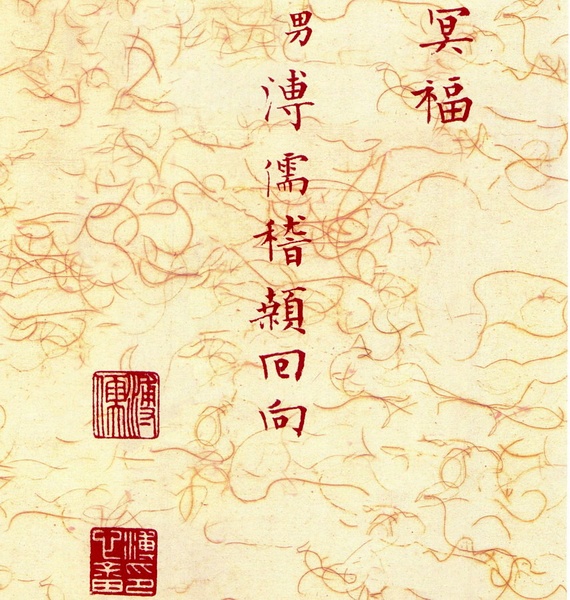 冥福
男溥儒稽顙回向
溥儒
溥心畬印